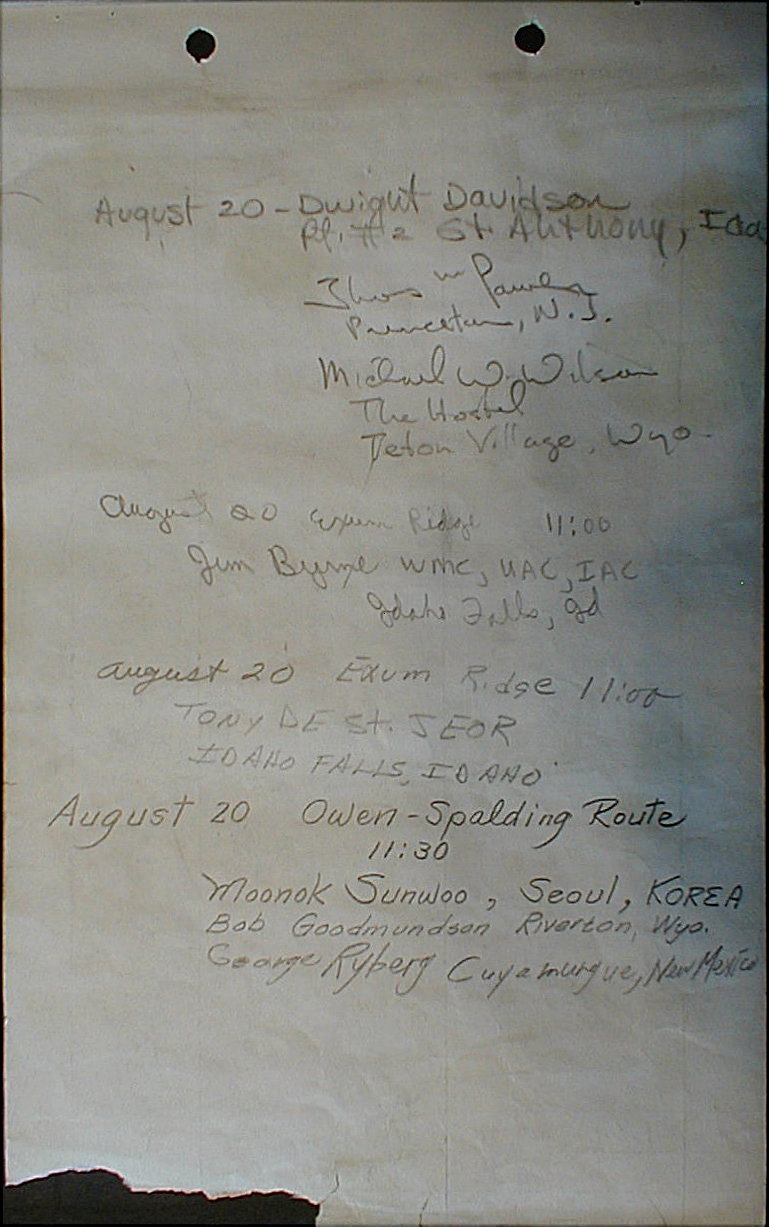 August 20 - Dwight Davidson
Rt. #2 St. Anthony, Ida
Thos
Princeton, N.J.
Michael W. Wilson
The Hostel
Teton Village, Wyo.
August 20 Exum Ridge 11:00
Jim Byrne WMC, UAC, IAC
Idaho Falls, Id
August 20 Exum Ridge 11:00
TONY DE St. JEOR
IDAHO FALLS, IDAHO
August 20 Owen-Spalding Route
11:30
Moonok Sunwoo, Seoul, KOREA
Bob Goodmundson Riverton, Wyo.
George Ryberg Cuyamungue, New Mexico